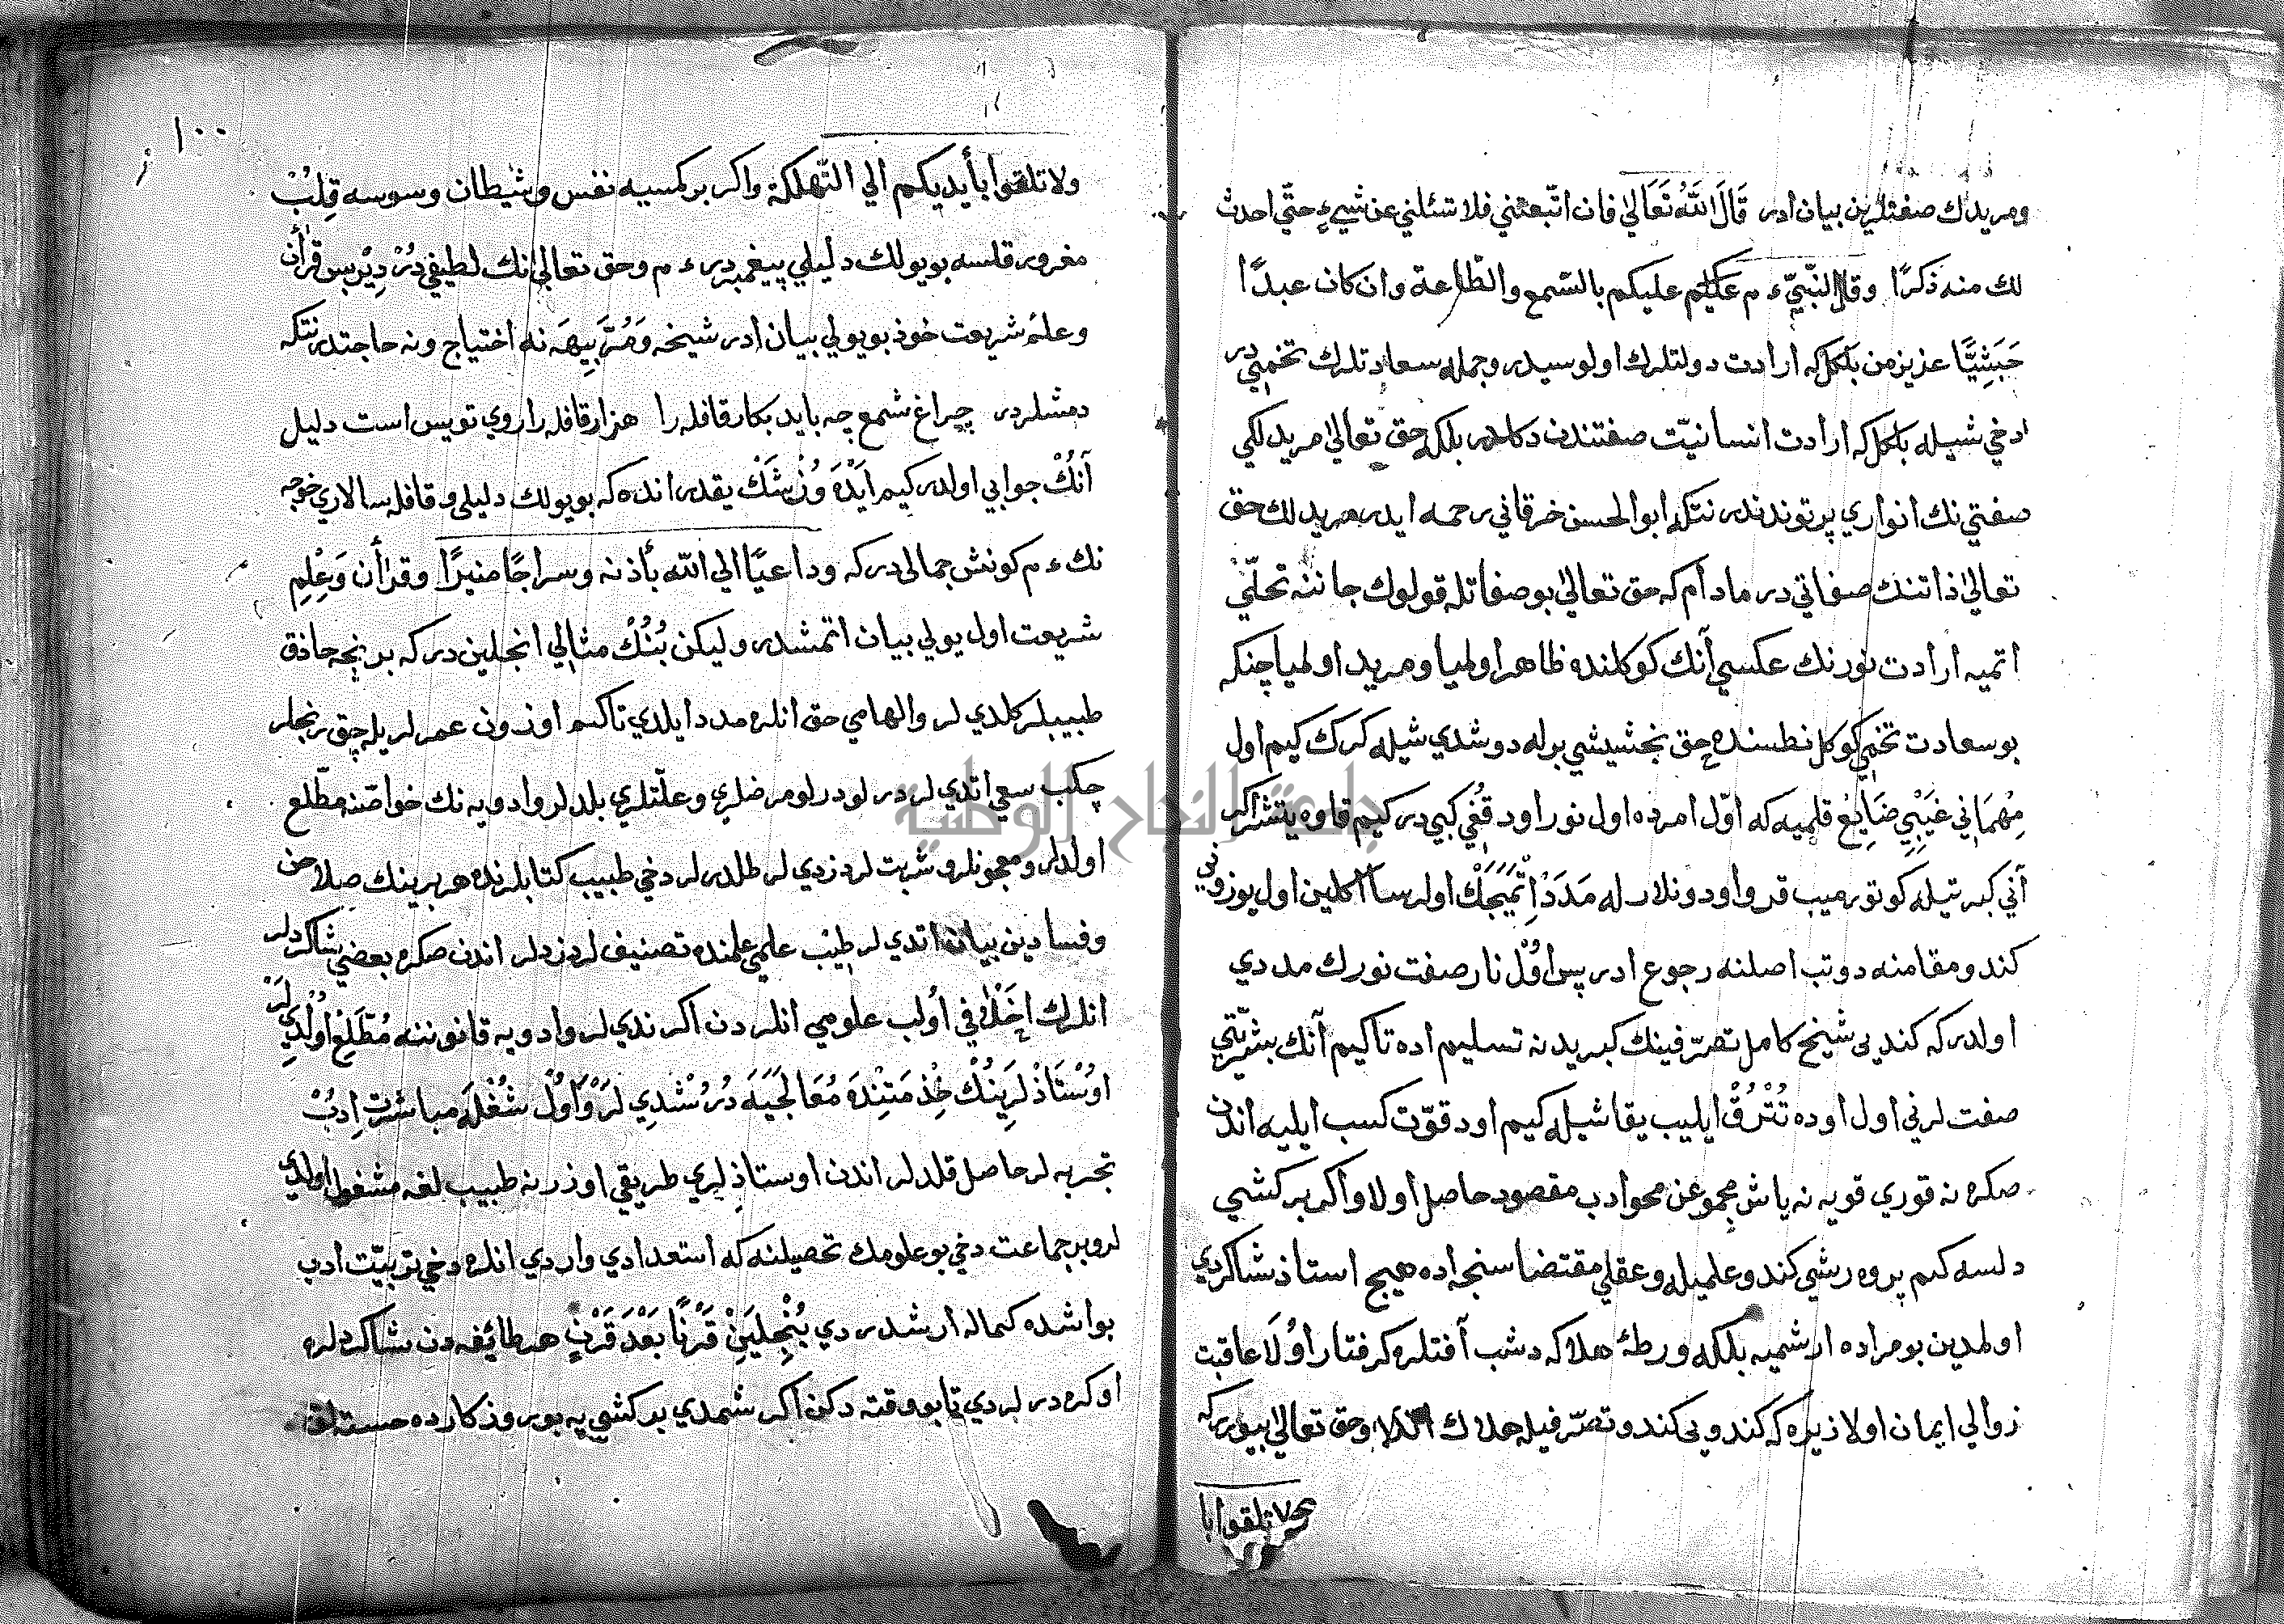 ومريدك صفتلرين بيان ادر قَالَ اللّٰهُ تَعَالٰي فان اتّبعتني فلا تسئلني عن شيءٍ حتّي احدث
لك منه ذكرًا وقال النّبيّ ءم عليكم عليكم بالسّمع والطّاعة وان كان عبدًا
حَبَشِيًّا عزيز من بلكل كه ارادت دولتلرك اولوسيدر وجمله سعادتلرك تخميدر
ادخي شيله بلكل كه ارادت انسانيّت صفتندن دكلدر بلكه حق تعالٰي مريدلكي
صفتي نك انواري پرتوندندر نتكه ابو الحسن خرقاني رحمه ايدر مريدلك حق
تعالٰي ذاتنك صفاتي در مادام كه حق تعالٰي بو صفاتله قولوك جاننه تجلّي
اتميه ارادت نورنك عكسي آنك كوكلنده ظاهر اولميا ومريد اولميا چنكه
بو سعادت تخمي كوكل نطسنده حق بخشيشي بوله دوشدي شيله كرك كيم اول
مِهْمَاني غَيْبِيِ ضَايِعْ قلميه كه اوّل امرده اول نور اود قُغي كبي در كيم قاوه يتشر اكر
آني كبرتيله كوتورميب قرو اودونلار له مَدَدْ اِتْمَيَجَكْ اولرسا اكلين اول يوزوني
كندو مقامنه دوتب اصلنه رجوع ادر پس اوُّل نار صفت نورك مددي
اولدر كه كنديي شيخ كامل تصرّفينك كبريدنه تسليم اده تا كيم آنك بشريّتي
صفت لرني اول اوده تُتْرُقْ ايليب يقا شيله كيم اود قوّت كسب ايليه اندن
صكره نه قوري قويه نه ياش مجموعن محو ادب مقصود حاصل اولا واكر بر كشي
دلسه كيم پروه رشي كندو علميله وعقلي مقتضاسنجه اده هيچ استاذ شاكردي
اولمدين بو مراده ارشميه بلكه ورطهٔ هلاكه دشب آفتلره كرفتار اوُلَا عاقبت
زوالي ايمان اولا زيره كه كندويي كندو تصرّفيله هلاك وحق تعالٰي بيورر كه
ولا تلقوا با
١٠٠
ولا تلقوا بأيديكم الي التّهلكة واكر بر كمسيه نفس وشيطان وسوسه قِلبْ
مغرور قلسه بو يولك دليلي پيغمبر در ءم وحق تعالٰي نك لطيفي دُرْ دِيْر بس قرأن
وعلم شريعت خوذ بو يولي بيان ادر شيخه وَمُرَبِيهَ نه اختياج ونه حاجتدر نتكه
دمشلردر چراغ شمع چه بايد بكار قافله را هزار قافله را روي تو بس است دليل
آنُكْ جوابي اولدر كيم ايْدَهْ وُزْ شَكْ يقدر انده كه بو يولك دليلي وقافله سالاري خوجه
نك ءم كونش جمالي در كه وداعيًا الي اللّه بأذنه وسراجًا منيرًا وقرأن وَعِلْمِ
شريعت اول يولي بيان اتمشدر وليكن بُنُكْ مثالي انجلين در كه بر نجه حاذق
طبيبلر كلدي لر والهامي حق انلره مدد ايلدي تا كم اوزون عمرلر يله چق رنجلر
چكب سعي اتدي لر درلو درلو مرضلري وعلّتلري بلدلر وادويه نك خواصّنه مطّلع
اولدلر ومعجونلر وشربت لر دزدي لر طلدرلر دخي طبيب كتابلرنده هر برينك صلاحن
وفسادين بيان اتدي لر طِيْب علمي علمنده تصنيف لر دزدلر اندن صكره بعضي شاكردلر
انلرك اخْلَافي اوُلب علومي انلردن اكرندي لر وادويه قانوننه مُطَّلِعْ اوُلْدِي لَرْ
اوُسْتَاذْ لَرِينُكْ خِذْمَتِنْدَهْ مُعَالَجَيَهْ دُرُشْدِي لَرْ وَاوُلْ شُغْلَهْ مباشرت اِدبْ
تجربه لر حاصل قلدلر اندن اوستاذ لري طريقي اوزرنه طبيب لغه مشغول اولدي
لر وبر جماعت دخي بو علومك تحصيلنه كه استعدادي واردي انلره دخي تربيّت ادب
بو اشده كماله ارشدردي بُنْجِلَيِنْ قَرْنًا بَعْدَ قَرْنٍ هر طائفه دن شاكردلره
اوكره درلردي تا بو وقته دكن اكر شمدي بر كشي يه بو روزكارده خسته لق